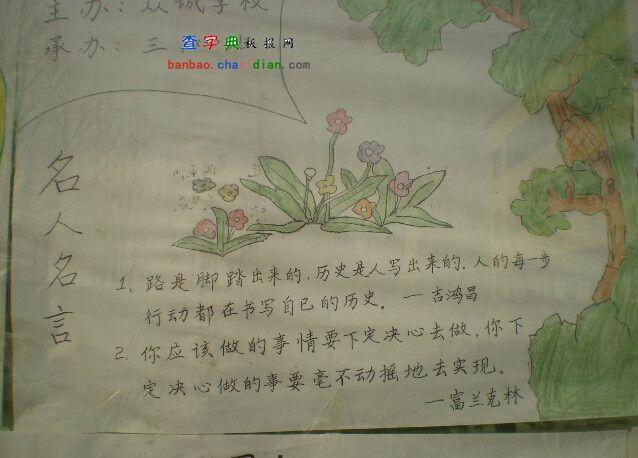 主办：众诚学校
承办：三
查字典板报网
banbao.chazidian.com
名人名言
1、路是脚踏出来的，历史是人写出来的．人的每一步
行动都在书写自己的历史。—吉鸿昌
2、你应该做的事情要下定决心去做，你下
定决心做的事要毫不动摇地去实现。
—富兰克林